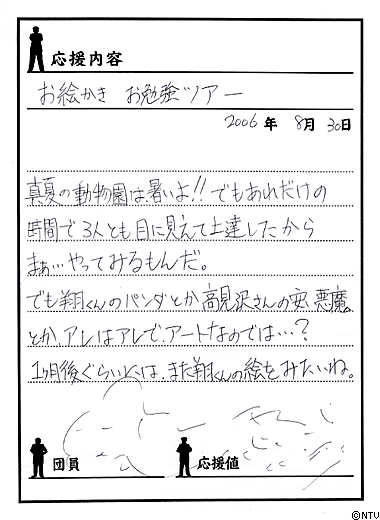 応援内容
お絵かき お勉強ツアー
2006年 8月 30日
真夏の動物園は暑いよ!!でもあれだけの
時間で3人とも目に見えて上達したから
まぁ…やってみるもんだ。
でも翔くんのパンダとか高見沢さんの
悪魔。
とか、アレはアレで、アートなのでは…?
1ヶ月後ぐらいには、また翔くんの絵をみたいね。
団員
応援値
©NTV